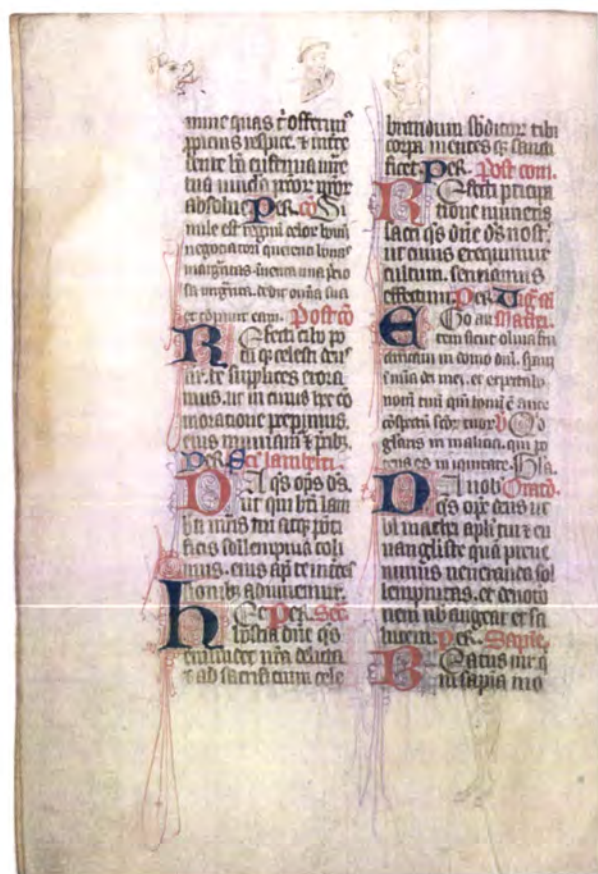 mine quas t offerim9
ppicius respice. ⁊ inte
bene
tua
absolue Per. cō Si
mile est regnū celor
negociatori querenti bonas
margaritas. inuenta una p̄cio
sa dedit omīa sua
et cōpauit eam. Postcō
Refecti cibo po
tu q̨ celesti deus
nr̄. te supplices exora
mus. ut in cuius hec cō
moratione p̄cepimus.
eius muniam̄ ⁊ p̄cibꝫ.
Per. Scī lamberti.
Da qs ops ds.
ut qui bt̄i lam
b̄ti mr̄is tui atq̨ pōti
ficis sollempnia coli
mus. eius apd te inces
sionibꝫ adiuuemur.
Per. Sec̄.
Hec hostia dn̄e qs
emundet nr̄a delicta
⁊ ad sacrificium cele
brandum sbditor tibi
corpa mentes q̨ sancti
ficet. Per. Post com̄.
Refecti pticipa
tione muneris
sacri qs dn̄e ds nost̄.
ut cuius exequimur
cultum. sentiamus
effectum. Per. Viḡ scī
Ego au Mathei.
tem sicut oliua fru
ctificaui in domo dn̄i. spaui
ī mīa dei mei. et expectabo
nom̄ tuū qm̄ bonū ē ante
cōspectū scōr tuor V Qd̄
gl̄aris in malicia. qui po
tens es in iniquitate. Gl̄a.
Da nob̄ Oracō.
qs op̄s deus ut
bt̄i mathei apl̄i tui ⁊ eu
uangliste quā preue
nimus ueneranda sol
lempnitas. et deuotio
nem nb̄ augeat et sa
lutem. Per. Sapīe.
Beatus uir q
in sapīa mo